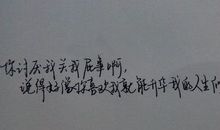 你讨厌我关我屁事啊，
说得好像你喜欢我就能升华我的人生似